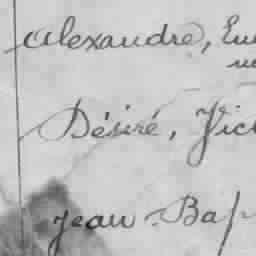 Alexandre, Eu
Désiré, Vic
Jean-Bap